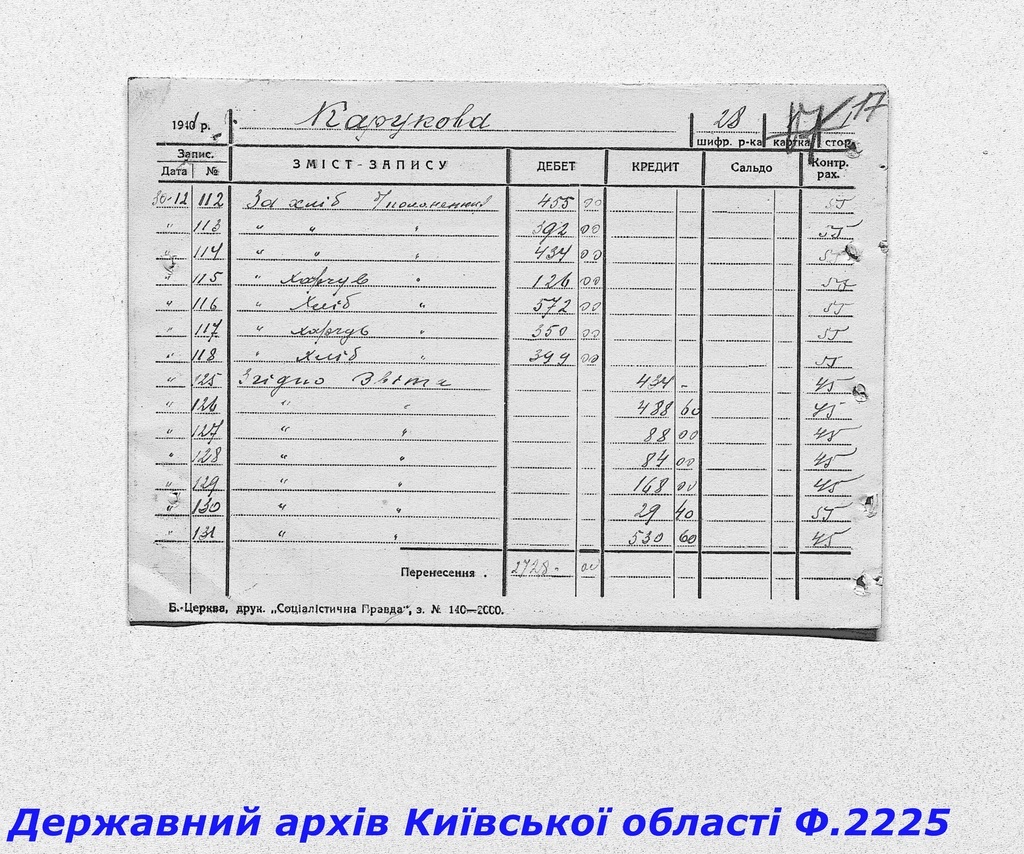 1941 р. Карукова 28 17
шифр. р-ка картка стор.
Запис. ЗМІСТ-ЗАПИСУ ДЕБЕТ КРЕДИТ Сальдо Контр. рах.
Дата №
30-12 112 За хліб 455 00 55
" 113 " " " 392 00 55
" 114 " " " 434 00 55
" 115 " Харчув " 126 00 57
" 116 " Хліб " 572 00 55
" 117 " Харчув " 350 00 55
" 118 " Хліб " 399 00 55
" 125 Згідно Звіта 434 - 45
" 126 " " 488 60 45
" 127 " " 88 00 45
" 128 " " 84 00 45
" 129 " " 168 00 45
" 130 " " 29 40 55
" 131 " " 530 60 45
Перенесення . 2728- 00
Б.-Церква, друк. „Соціалістична Правда", з. № 140—2000.
Державний архів Київської області Ф.2225